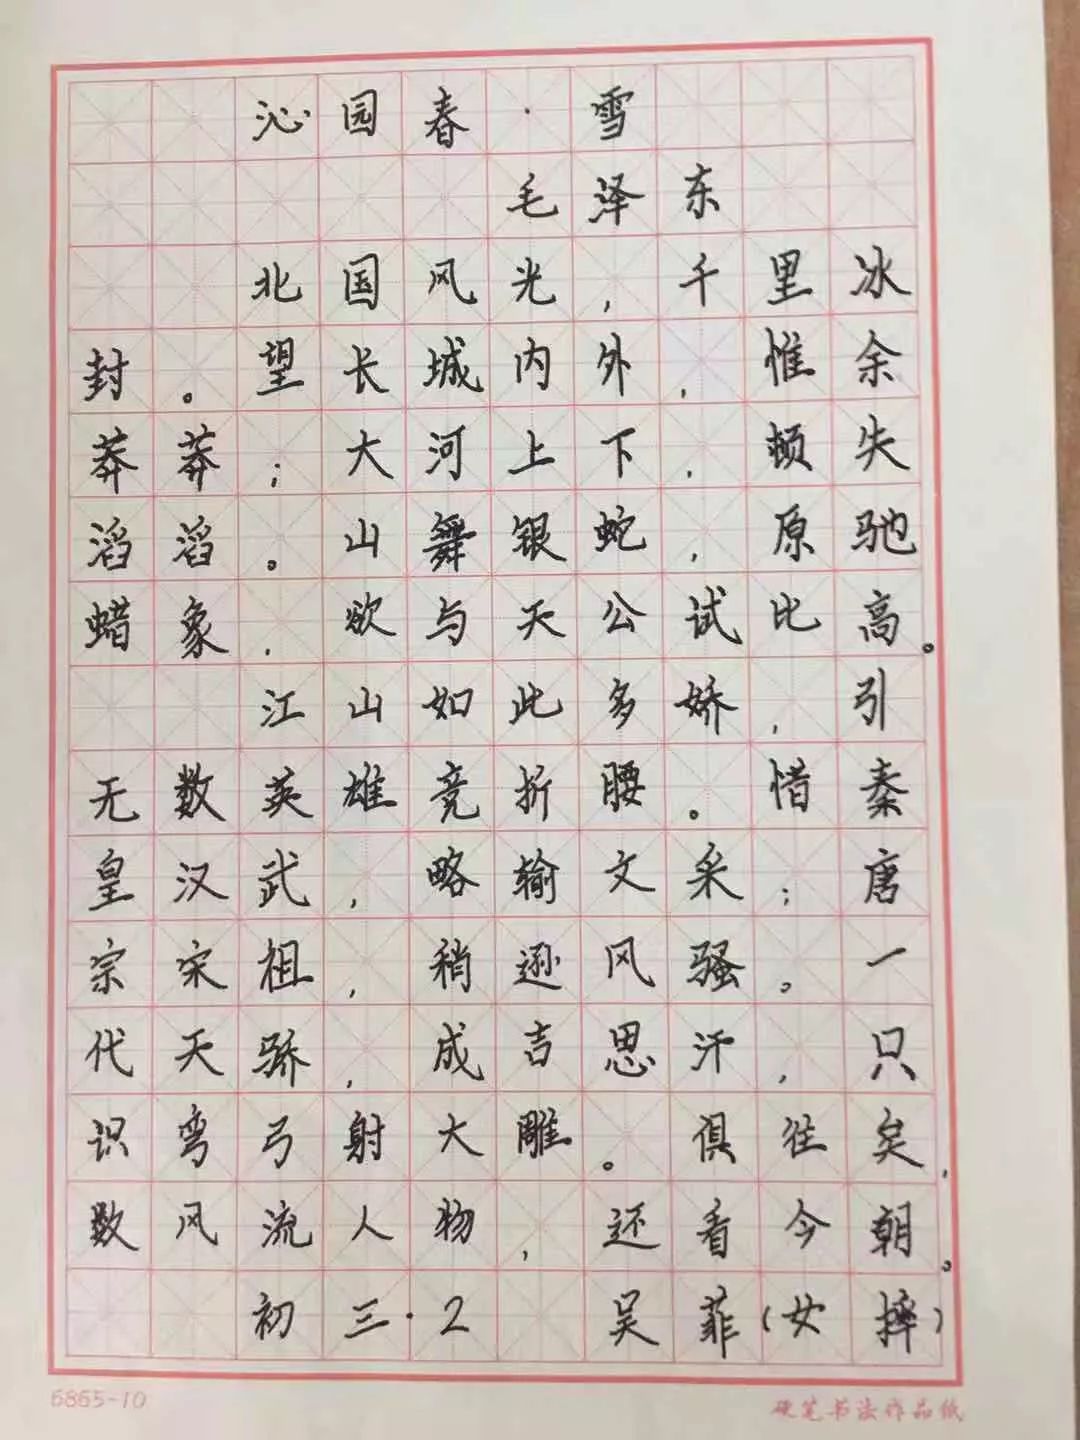 沁园春·雪
毛泽东
北国风光,千里冰
封。望长城内外,惟余
莽莽;大河上下,顿失
滔滔。山舞银蛇,原驰
蜡象,欲与天公试比高。
江山如此多娇,引
无数英雄竞折腰。惜秦
皇汉武,略输文采;唐
宗宋祖,稍逊风骚。一
代天骄,成吉思汗,只
识弯弓射大雕。俱往矣,
数风流人物,还看今朝。
初三·2 吴菲(女摔)
6865-10
硬笔书法作品纸